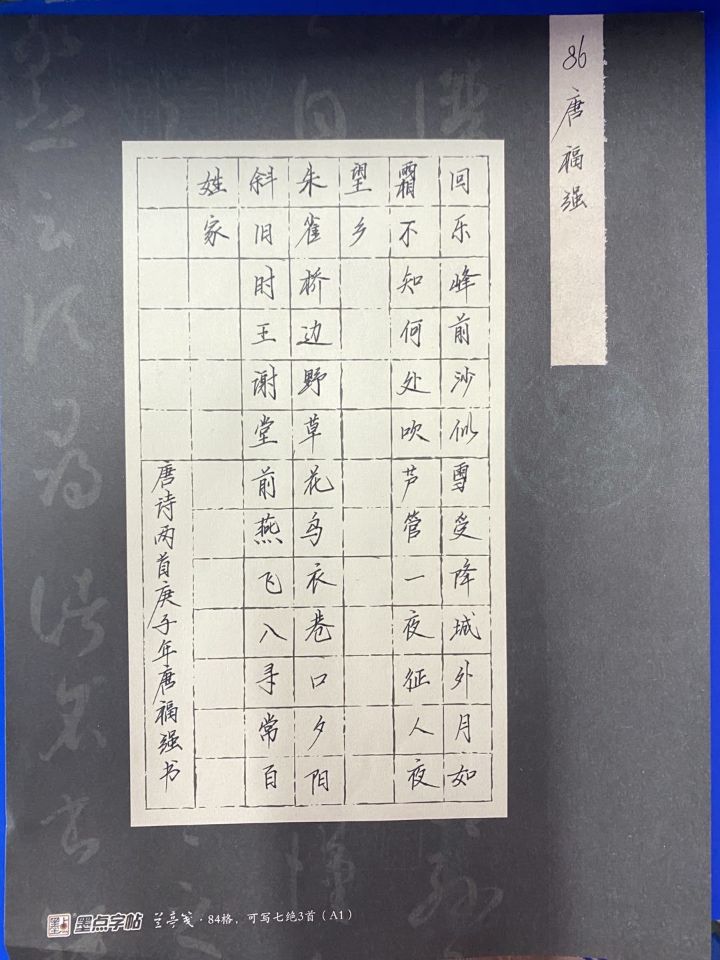 86 唐福强
回乐峰前沙似雪受降城外月如
霜不知何处吹芦管一夜征人夜
望乡
朱雀桥边野草花乌衣巷口夕阳
斜旧时王谢堂前燕飞入寻常百
姓家
唐诗两首庚子年唐福强书
墨点字帖 兰亭笺·84格，可写七绝3首（A1）